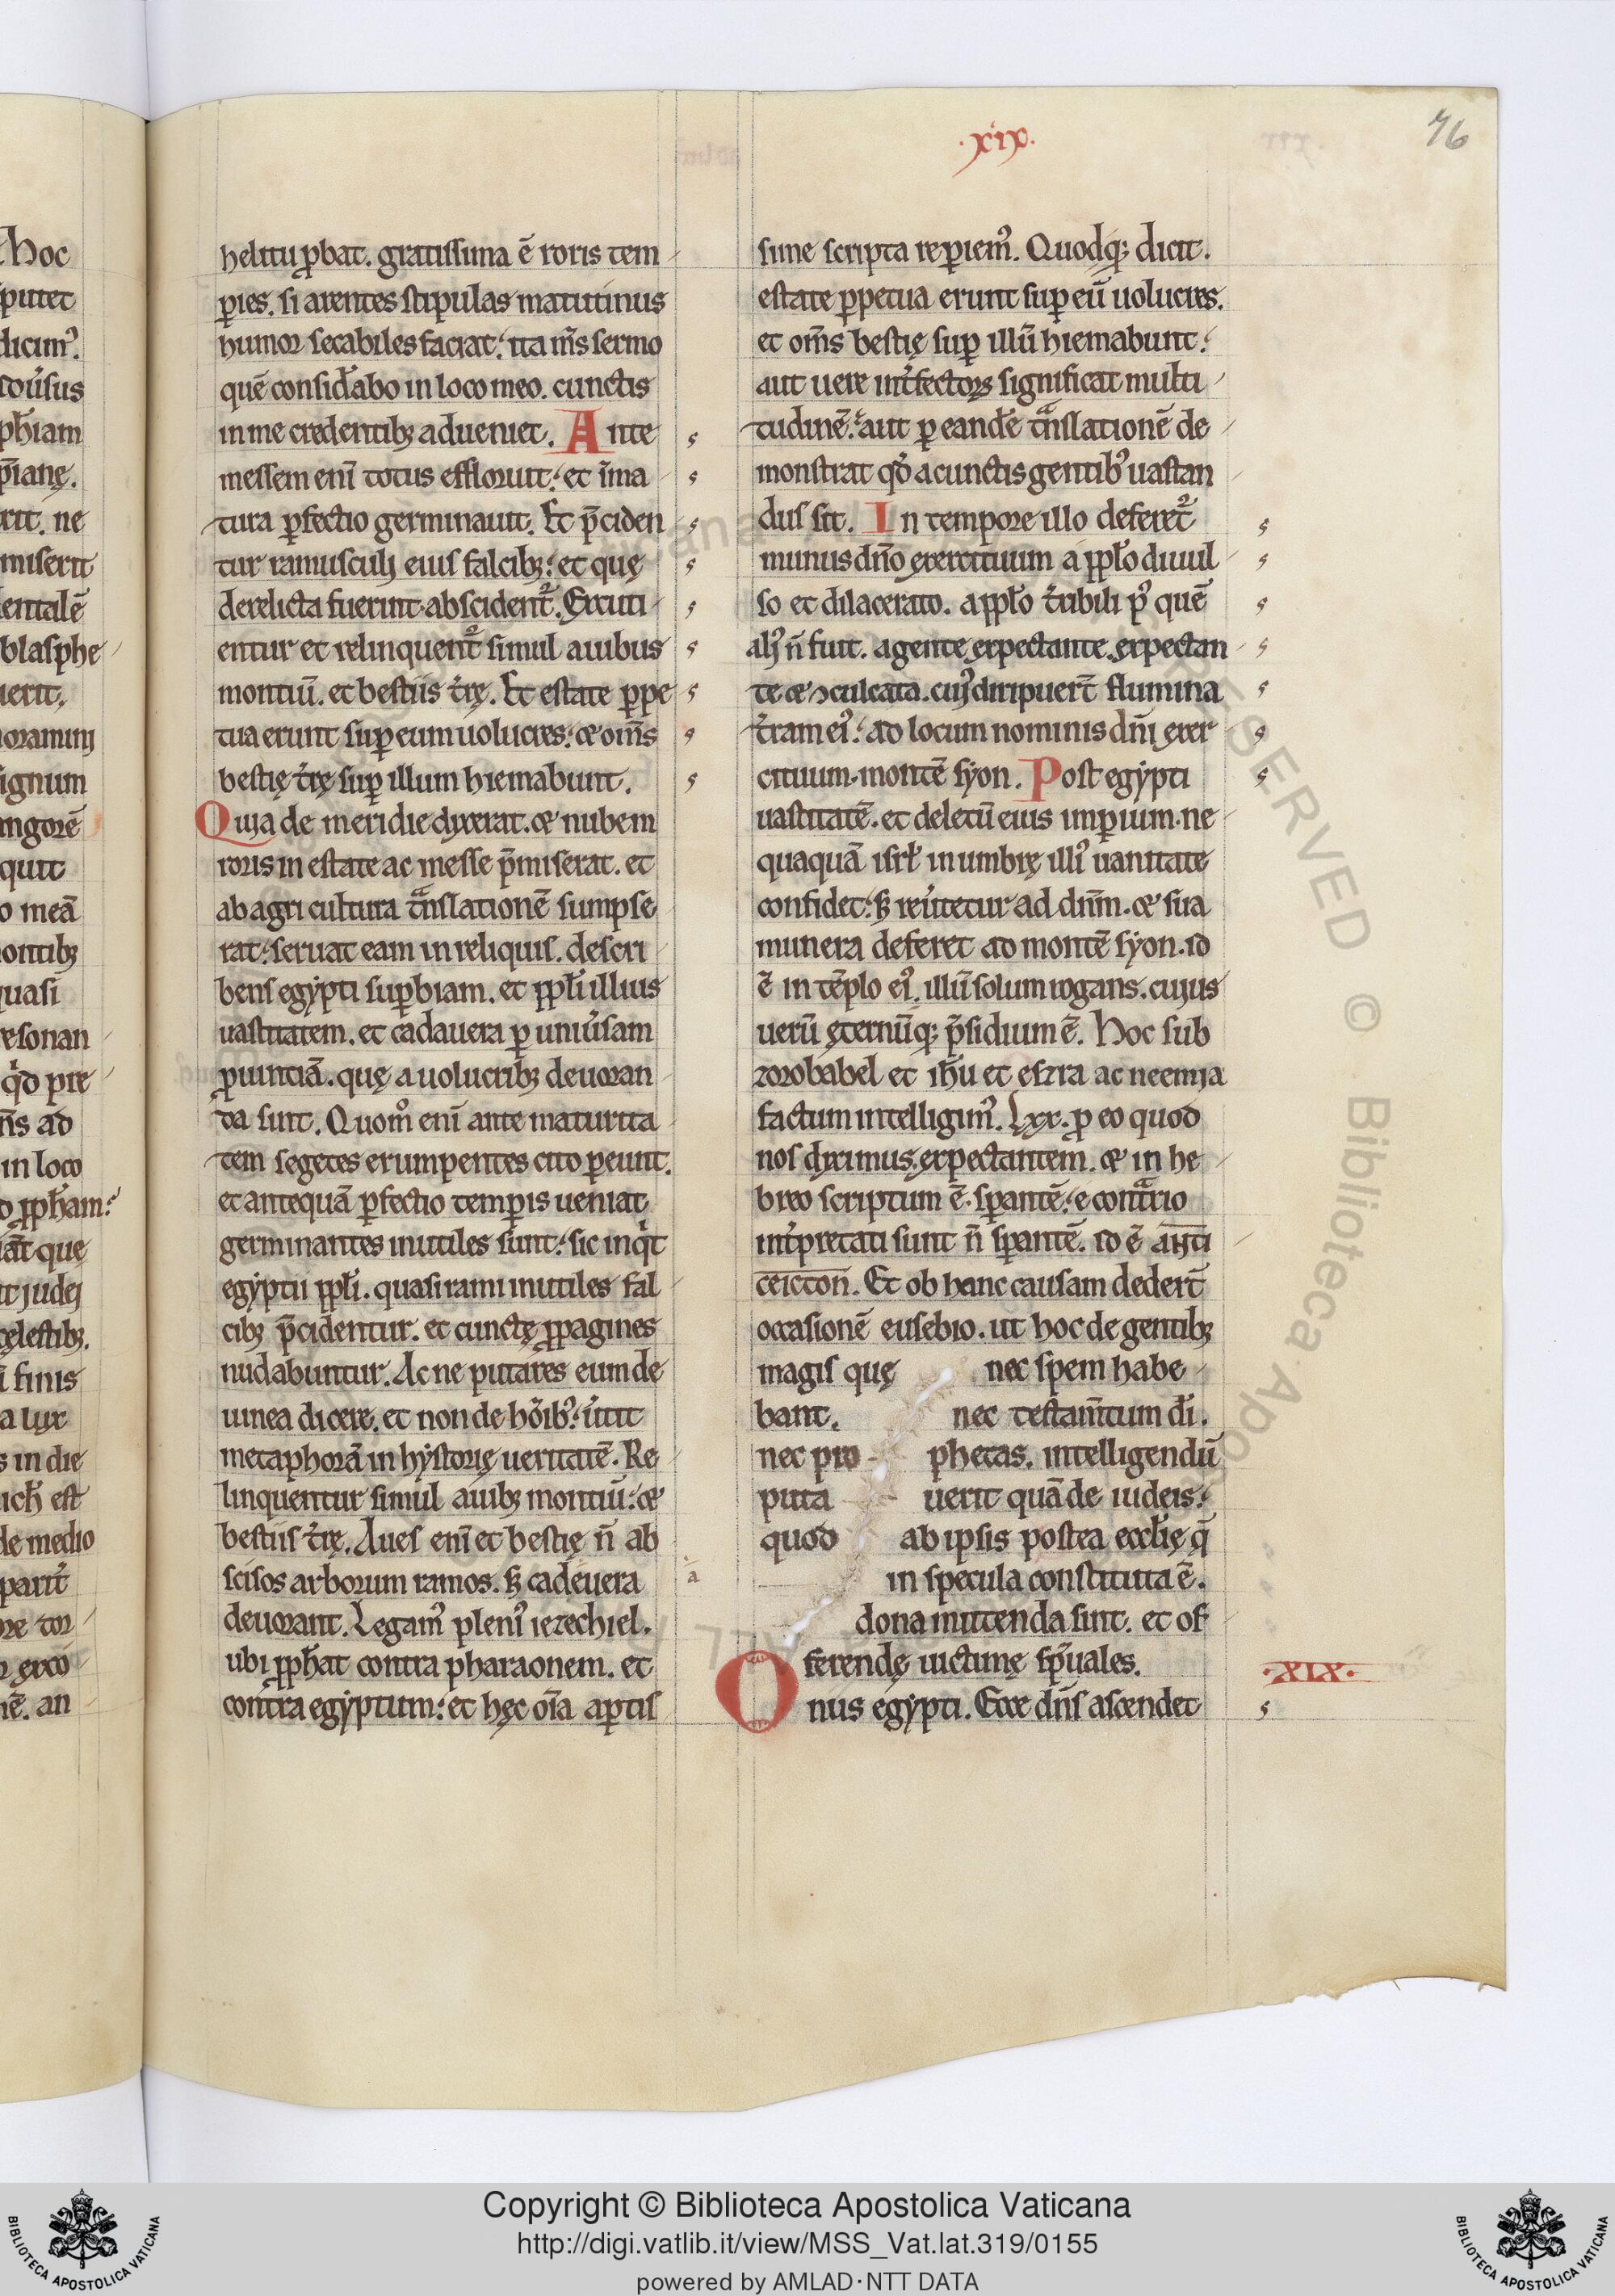 .xix.
76
helitu ꝓbat. gratissima ē roris tem
ꝑies. si arentes stipulas matutinus
humor secabiles faciat. ita m̄s sermo
quē consid̓abo in loco meo. cunctis
in me credentibꝫ adueniet. Ante
messem eni̅ totus effloruit. et īma
tura ꝑfectio germinauit. Et p̄ciden
tur ramusculi eius falcibꝫ. et quę
derelicta fuerint abscident᷑. Excuti
entur et relinquent᷑ simul auibus
montiū. et bestiis t̓rę. Et estate ꝑpe
tua erunt suꝑ eum uolucres. & om̄s
bestię t̓rę suꝑ illum hiemabunt.
Quia de meridie dixerat. & nubem
roris in estate ac messe p̄miserat. et
ab agri cultura tᷓnslationē sumpse
rat. seruat eam in reliquis. descri
bens egypti suꝑbiam. et ppl̓i illius
uastitatem. et cadauera ꝑ uniu̓sam
ꝓuintiā. quę a uolucribꝫ deuoran
da sint. Quom̊ eni̅ ante maturita
tem segetes erumpentes cito ꝑeunt.
et antequā ꝑfectio temꝑis ueniat
germinantes inutiles sunt. sic inqͥt
egyptii ppl̓i. quasi rami inutiles fal
cibꝫ p̄cidentur. et cunctę ꝓpagines
nudabuntur. Ac ne putares eum de
uinea dicere. et non de hōibꝰ. u̓tit
metaphorā in hystorię ueritatē. Re
linquentur simul auibꝫ montiū. &
bestiis t̓rę. Aues eni̅ et bestię n̄ ab
scisos arborum ramos. sꝫ cadeuera
a
deuorant. Legamꝰ pleniꝰ iezechiel.
ubi ꝓph̓at contra pharaonem. et
contra egyptum. et hęc oīa aꝑtis
sime scripta reꝑiemꝰ. Quodqꝫ dicit.
estate ꝑpetua erunt suꝑ eū uolucres.
et om̄s bestię suꝑ illū hiemabunt.
aut uere int̓fectoꝝ significat multi
tudinē. aut ꝑ eandē tᷓnslationē de
monstrat qd̓ a cunctis gentibꝰ uastan
dus sit. In tempore illo deferet᷑
munus dn̄o exercituum a ppl̓o diuul
so et dilacerato. a ppl̓o t̓ribili pꝰ quē
aliꝰ n̄ fuit. a gente expectante. expectan
te & ꝯculcata. cuiꝰ diripuer̄t flumina
t̓ram eiꝰ. ad locum nominis dn̄i exer
cituum. montē syon. Post egypti
uastitatē. et deletū eius imꝑium. ne
quaquā isrl̓ in umbrę illiꝰ uanitate
confidet. sꝫ reu̓tetur ad dn̄m. & sua
munera deferet ad montē syon. id
ē in tēplo eiꝰ. illū solum rogans. cujus
uerū ęternūqꝫ p̄sidium ē. Hoc sub
zorobabel et ih̄u et eszra ac neemia
factum intelligimꝰ. Lxx. ꝓ eo quod
nos diximus. expectantem. & in he
breo scriptum ē. sꝑantē. e contᷓrio
int̓pretati sunt n̄ sꝑantē. id ē anti
ceicton. Et ob hanc causam deder̄t
occasionē eusebio. ut hoc de gentibꝫ
magis quę nec spem habe
bant. nec testam̄tum dī.
nec pro phetas. intelligendū
puta uerit quā de iudeis.
quod ab ipsis postea eccl̓ię q̄
in specula constituta ē.
dona mittenda sint. et of
ferendę uictimę sp̄uales.
·XIX·
Onus egypti. Ecce dn̄s ascendet
Copyright © Biblioteca Apostolica Vaticana
http://digi.vatlib.it/view/MSS_Vat.lat.319/0155
powered by AMLAD·NTT DATA
BIBLIOTECA APOSTOLICA VATICANA
BIBLIOTECA APOSTOLICA VATICANA